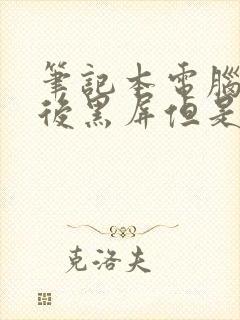 筆記本電腦
後黑屏但是
克洛夫